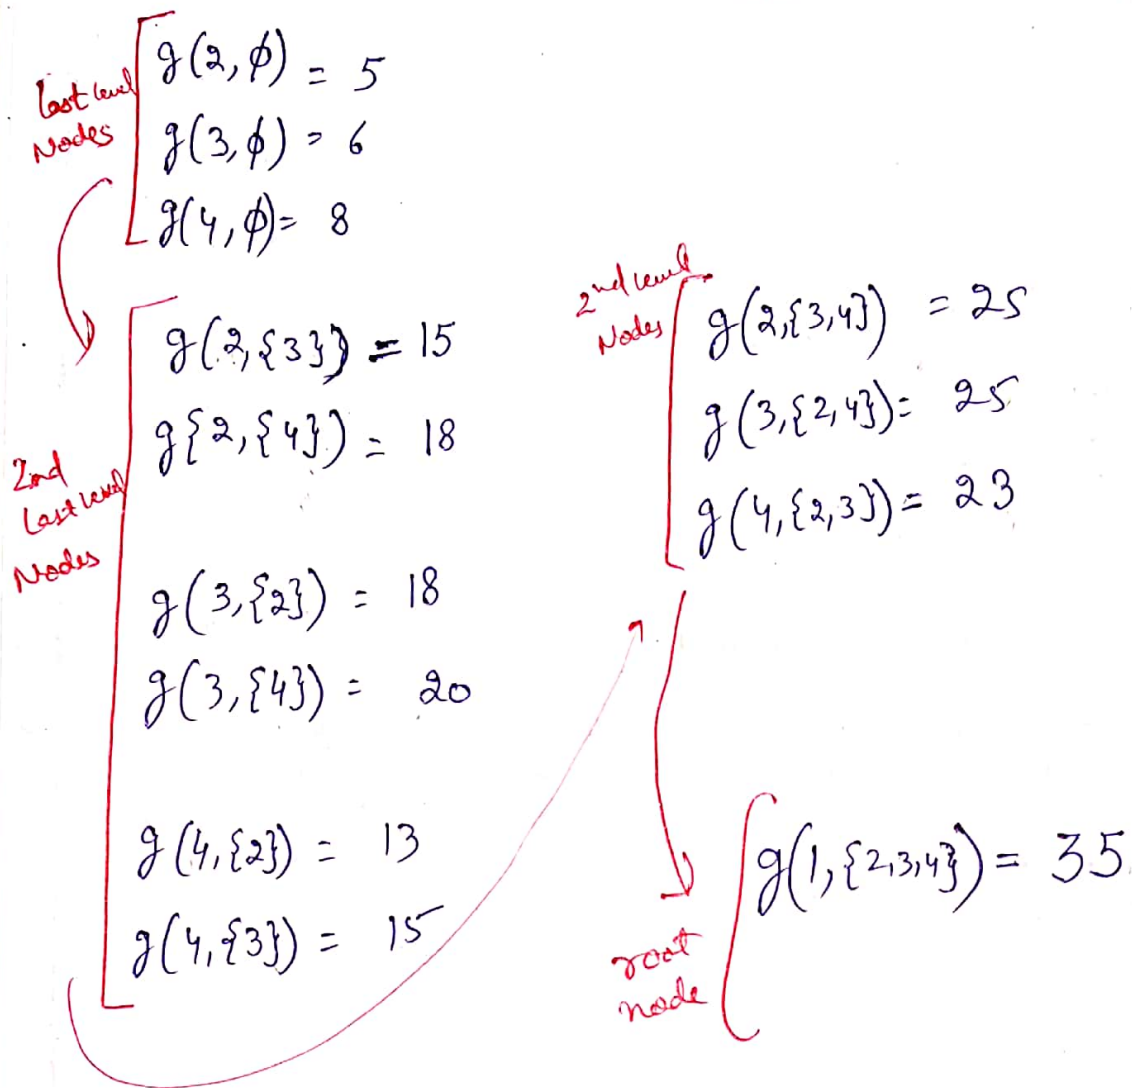 Last level
Nodes
g(2, ϕ) = 5
g(3, ϕ) = 6
g(4, ϕ) = 8
2nd
Last level
Nodes
g(2, {3}) = 15
g{2, {4}) = 18
g(3, {2}) = 18
g(3, {4}) = 20
g(4, {2}) = 13
g(4, {3}) = 15
2nd level
Nodes
g(2, {3,4}) = 25
g(3, {2,4}) = 25
g(4, {2,3}) = 23
root
node
g(1, {2,3,4}) = 35